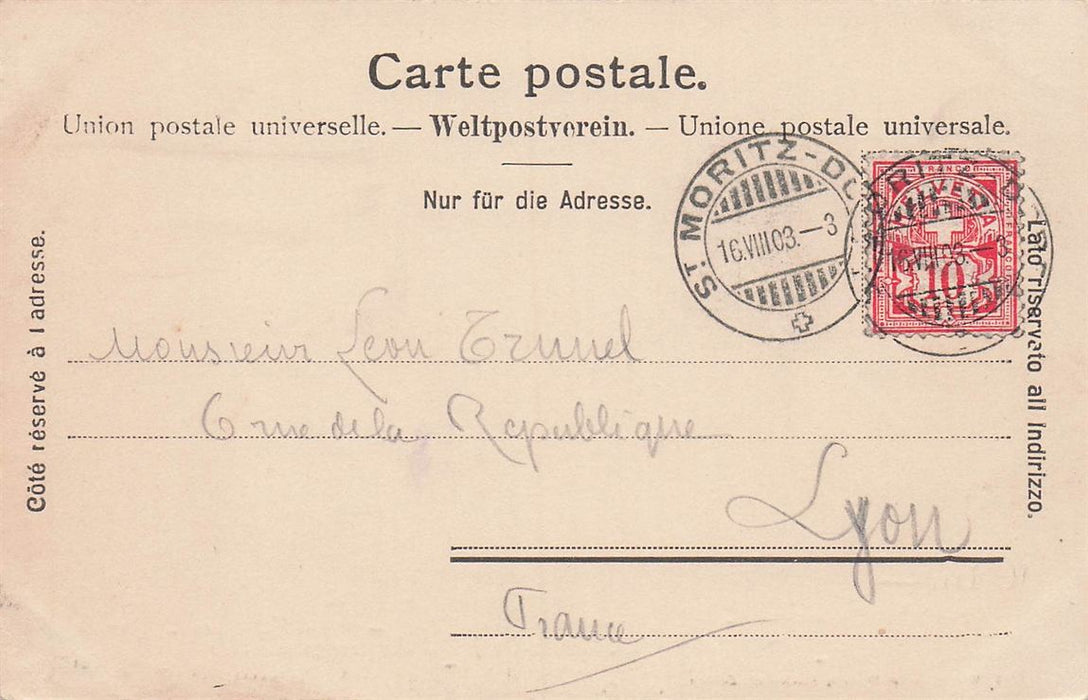 Carte postale.
Union postale universelle. — Weltpostverein. — Unione postale universale.
Nur für die Adresse.
Côté réservé à l adresse.
Lato riservato all Indirizzo.
ST MORITZ-DO
16.VIII.03.—3
FRANCO
10
RITZ-D
16.VIII.03.—3
Monsieur Léon
6 rue de la République
Lyon
France